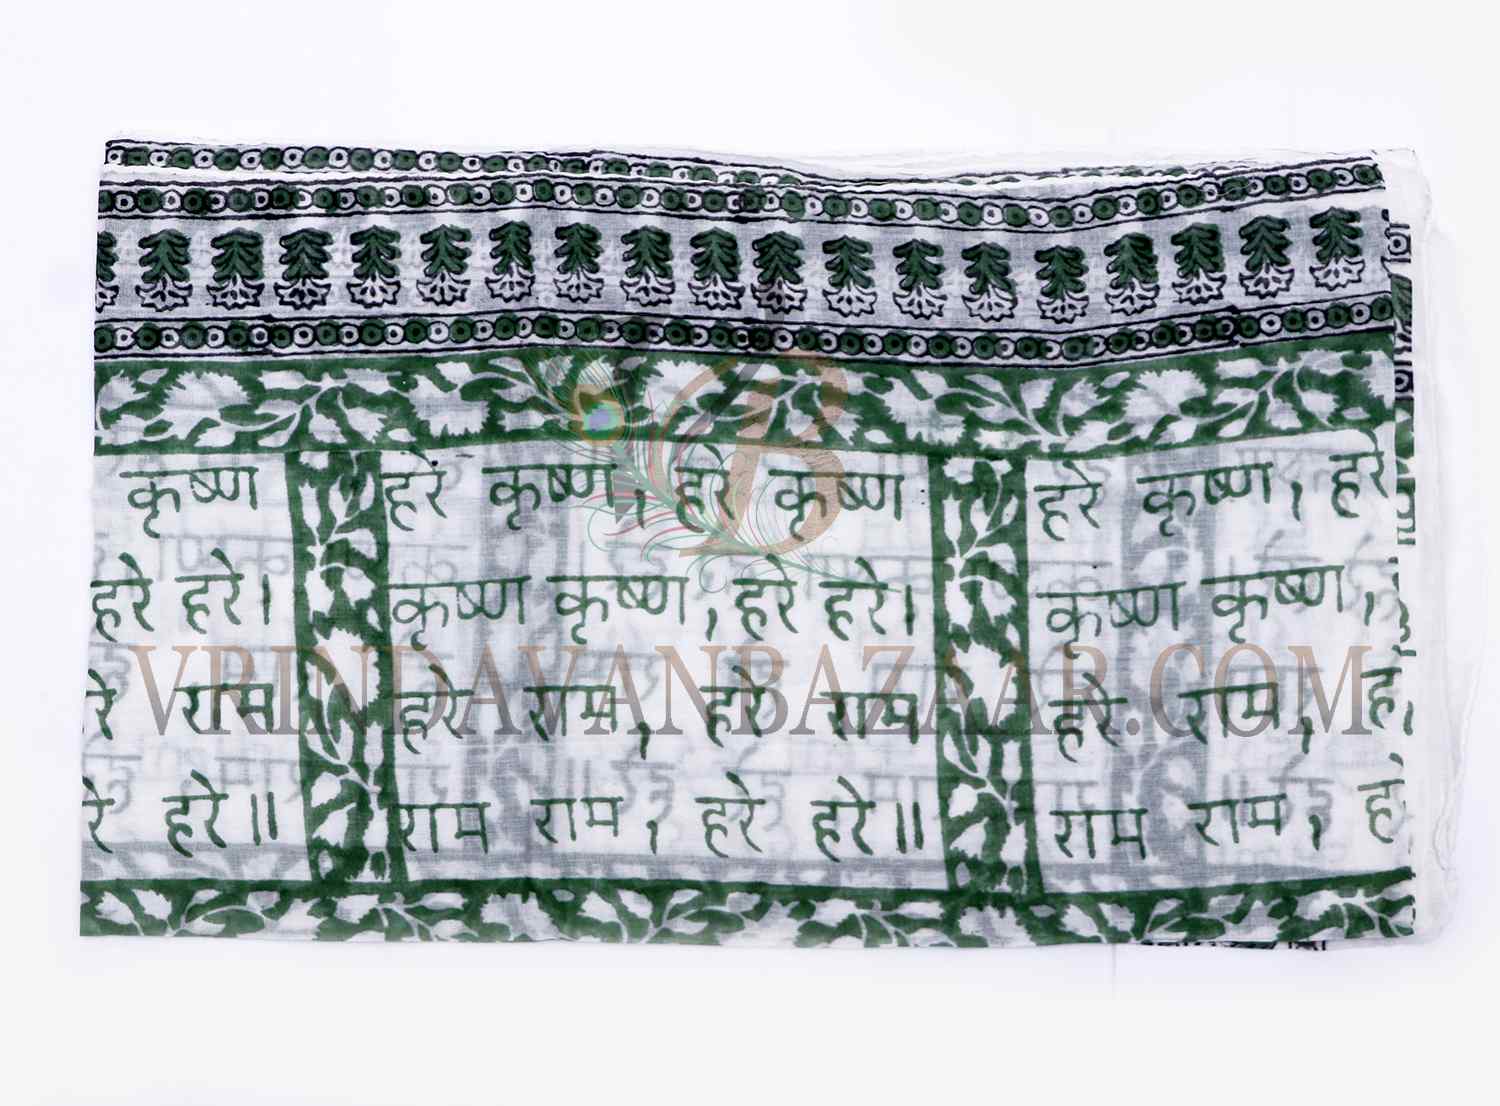 कृष्ण हरे कृष्ण, हरे कृष्ण हरे कृष्ण, हरे
हरे हरे। कृष्ण कृष्ण, हरे हरे। कृष्ण कृष्ण,
रे राम हरे राम, हरे राम हरे राम, ह
रे हरे॥ राम राम, हरे हरे॥ राम राम, ह
B
VRINDAVANBAZAAR.COM